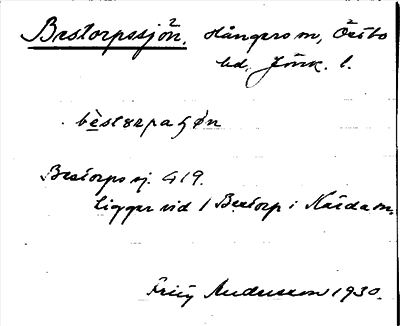 Bestorpssjön. Hångers sn, Östbo
hd, Jönk. l.
bèstorpaʂøn
Bestorps sj. G 19.
ligger vid 1 Bestorp i Kärda sn.
Frig Andersson 1930.